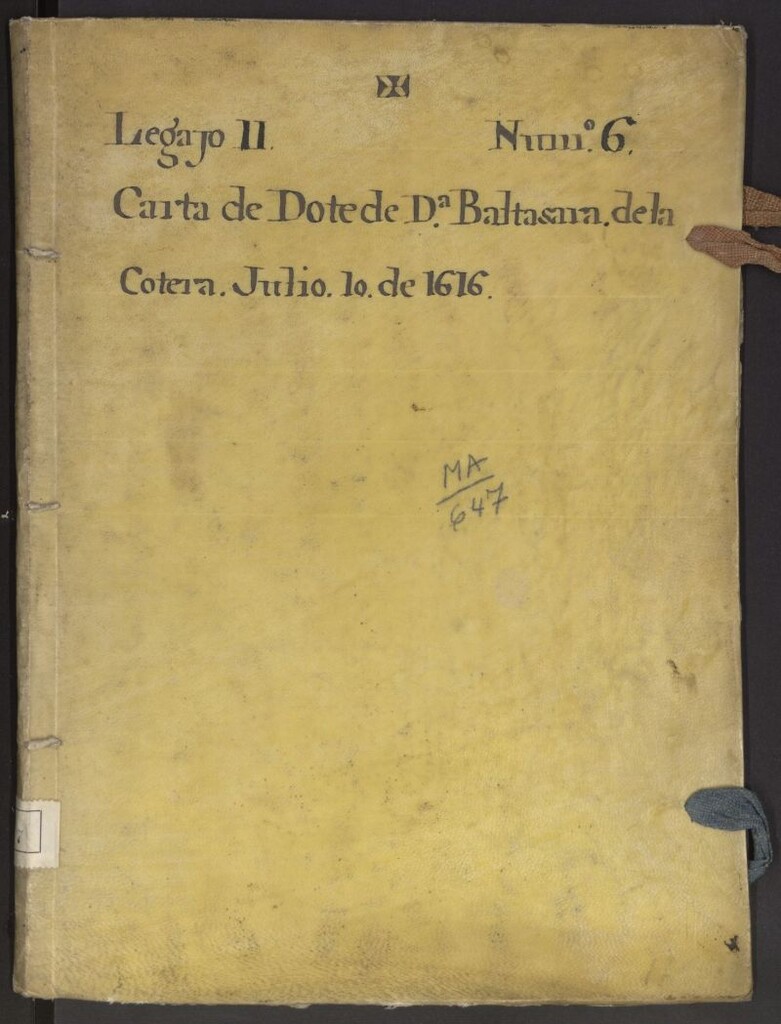 ✠
Legajo II. Num.º 6.
Carta de Dote de D.ª Baltasara. de la
Cotera. Julio. 10. de 1616.
MA
647